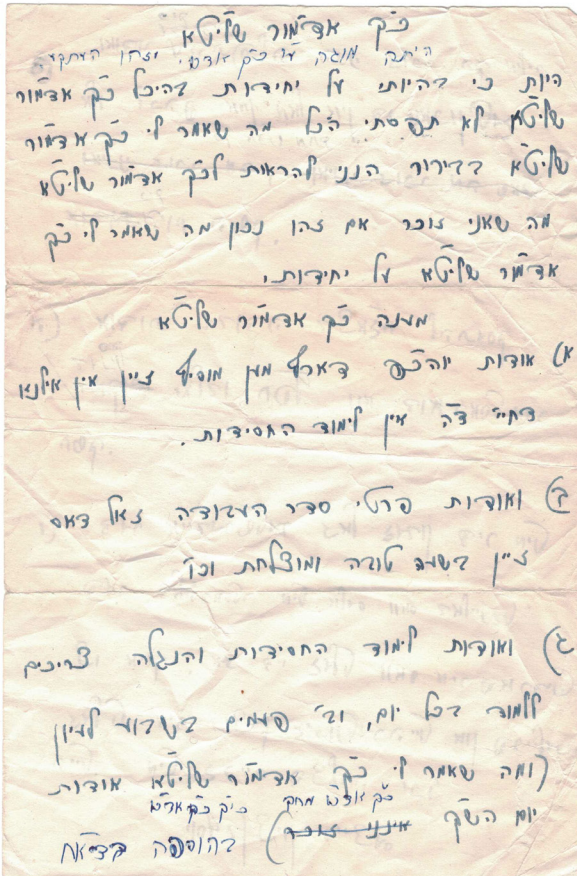 כ"ק אדמו"ר שליט"א
היתה מוגה ע"י כ"ק אדמו" וזהו העתקה
היות כי בהיותי על יחידות בהיכל כ"ק אדמו"ר
שליט"א לא תפסתי הכל מה שאמר לי כ"ק אדמו"ר
שליט"א בבירור הנני להראות לכ"ק אדמו"ר שליט"א
מה שאני זוכר אם זהו נכון מה שאמר לי כ"ק
אדמו"ר שליט"א על יחידותי.
מענה כ"ק אדמו"ר שליט"א
א) אודות יוהכ"פ דארף מען מוסיף זיין אין אילנא
דחיי ד"ה אין לימוד החסידות.
ב) ואודות פרטי סדר העבודה זאל דאס
זיין בשעה טובה ומוצלחת וכו'
ג) ואודות לימוד החסידות והנגלה צריכים
ללמוד בכל יום, וב' פעמים בשבוע לעיון
(ומה שאמר לי כ"ק אדמו"ר שליט"א אודות
כ"ק אד"ש מחק
יום הש"ק אינני זוכר) בהוספה